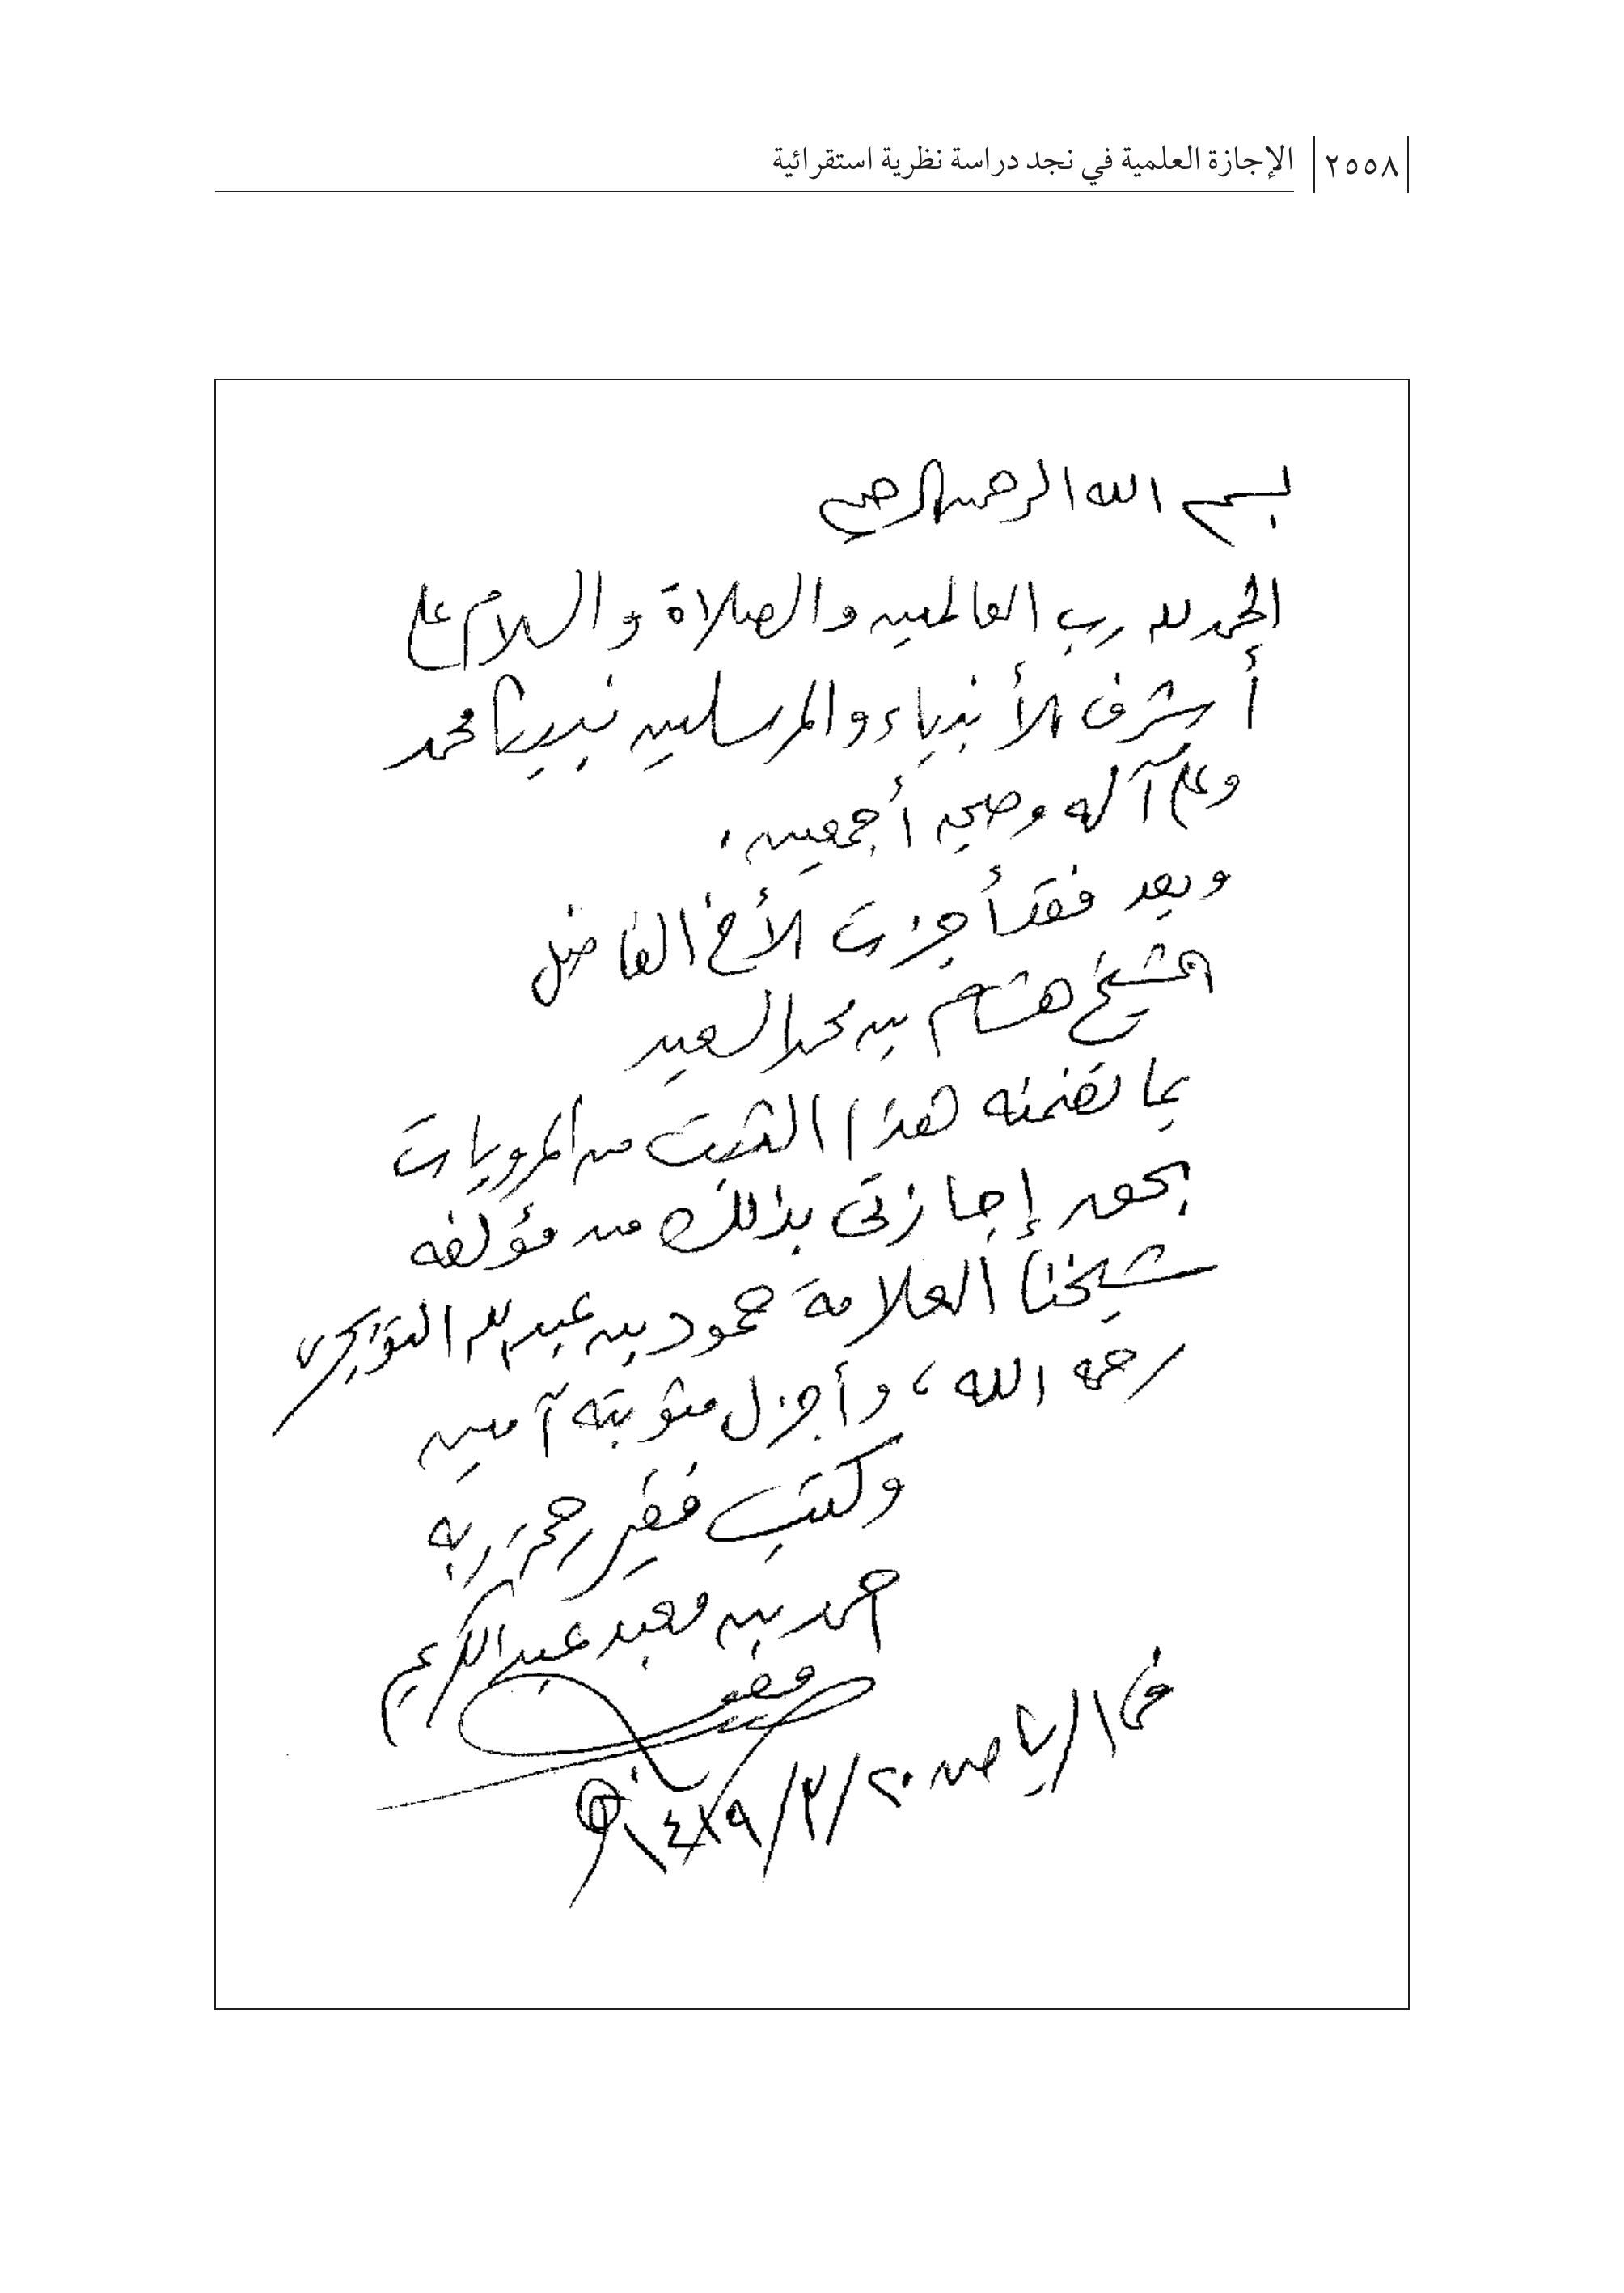 ٢٥٥٨ الإجازة العلمية في نجد دراسة نظرية استقرائية
بسم الله الرحمن الرحيم
الحمد لله رب العالمين والصلاة والسلام على
أشرف الأنبياء والمرسلين نبينا محمد
وعلى آله وصحبه أجمعين .
وبعد فقد أجزت الأخ الفاضل
الشيخ هشام بن محمد السعيد
بما تضمنه هذا الثبت من المرويات
بحق إجازتى بذلك من مؤلفه
شيخنا العلامة حمود بن عبد الله التويجرى
رحمه الله ، وأجزل مثوبته آمين
وكتب فقير رحمة ربه
احمد بن معبد عبد الكريم
فى الرياض ٢٠/٣/١٤١٩هـ